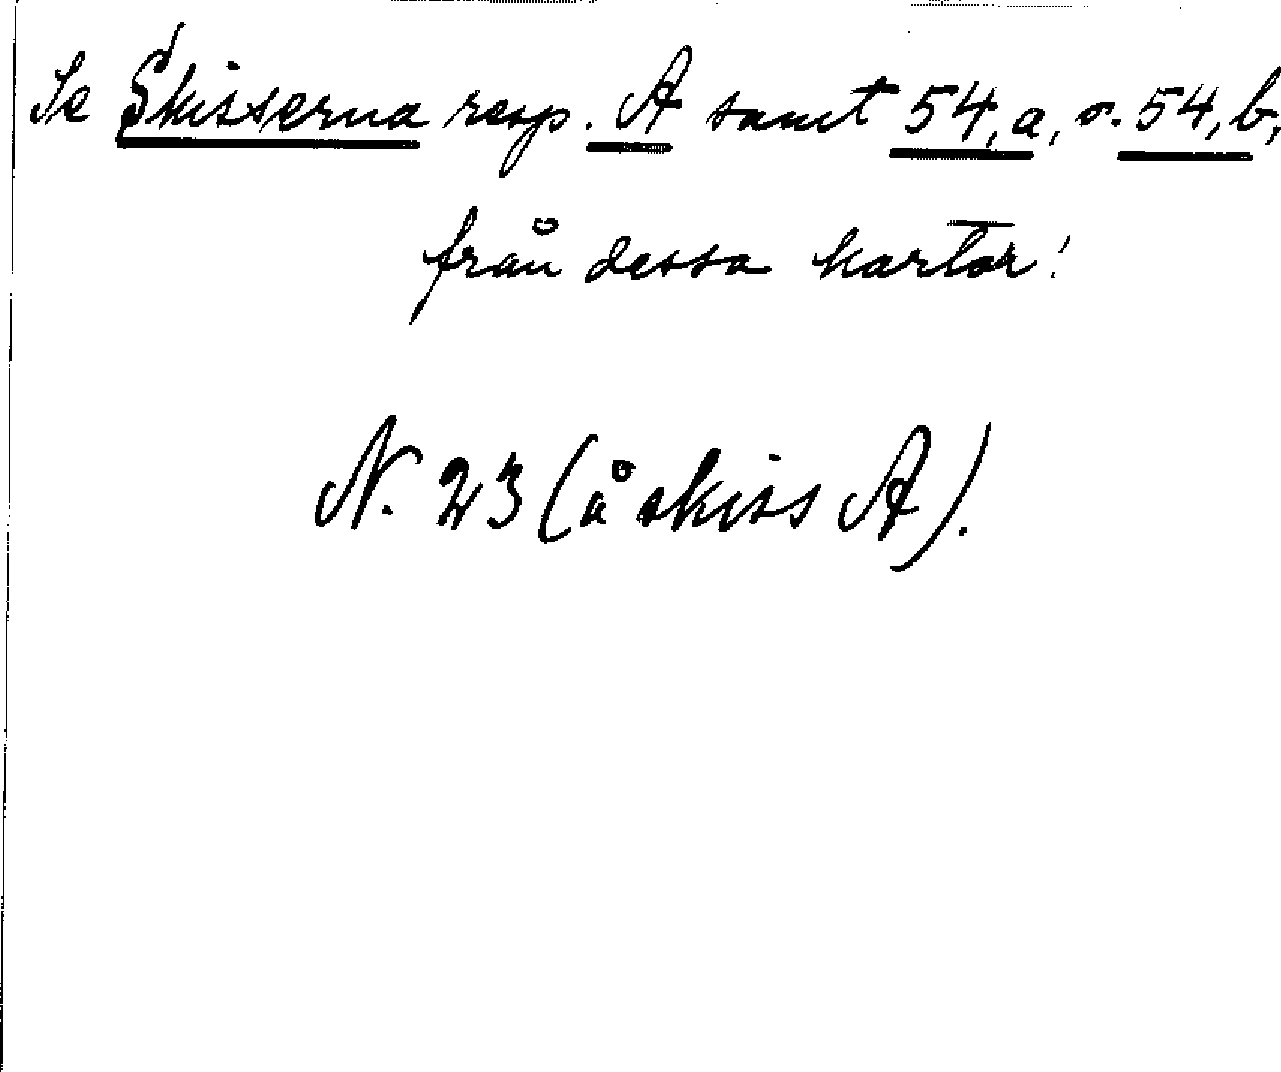 Se Skisserna resp. A samt 54,a, o. 54,b,
från dessa kartor!
N. 23 (å skiss A).